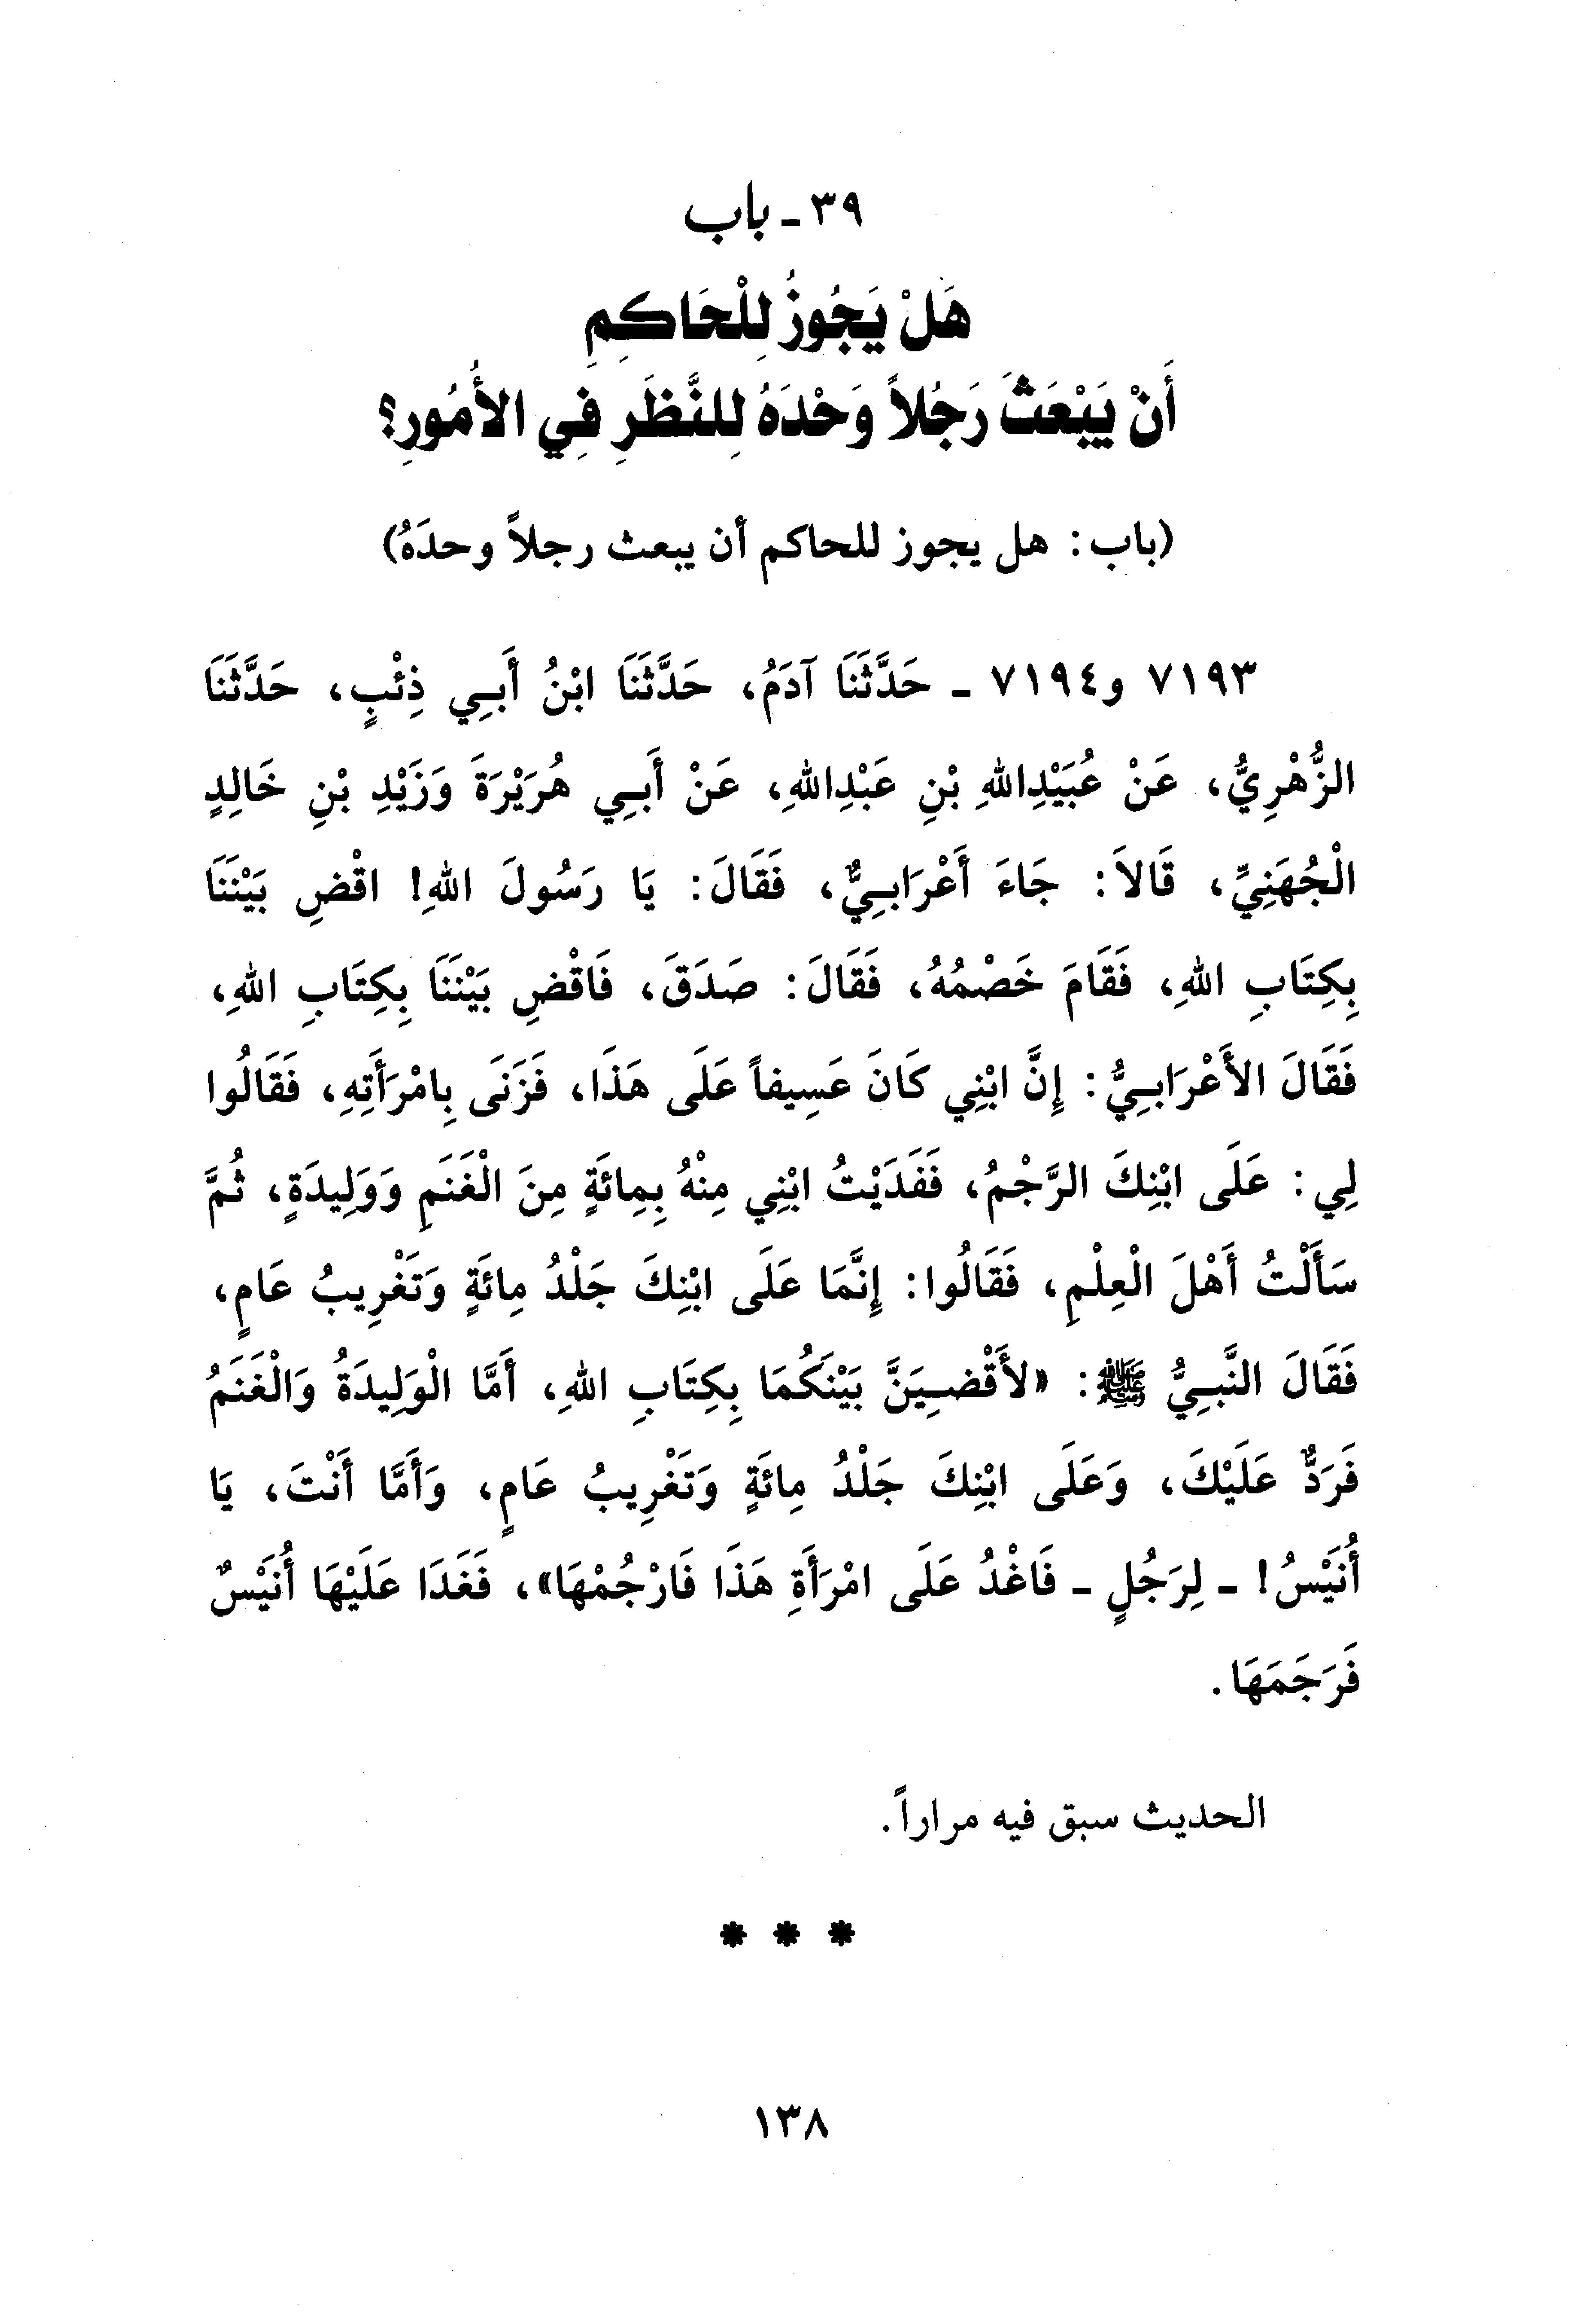 ٣٩ - باب
هَلْ يَجُوزُ لِلْحَاكِمِ
أَنْ يَبْعَثَ رَجُلاً وَحْدَهُ لِلنَّظَرِ فِي الأُمُورِ؟
(باب: هل يجوز للحاكم أن يبعث رجلاً وحدَهُ)
٧١٩٣ و٧١٩٤ - حَدَّثَنَا آدَمُ، حَدَّثَنَا ابْنُ أَبِي ذِئْبٍ، حَدَّثَنَا
الزُّهْرِيُّ، عَنْ عُبَيْدِاللهِ بْنِ عَبْدِاللهِ، عَنْ أَبِي هُرَيْرَةَ وَزَيْدِ بْنِ خَالِدٍ
الْجُهَنِيِّ، قَالاَ: جَاءَ أَعْرَابِيٌّ، فَقَالَ: يَا رَسُولَ اللهِ! اقْضِ بَيْنَنَا
بِكِتَابِ اللهِ، فَقَامَ خَصْمُهُ، فَقَالَ: صَدَقَ، فَاقْضِ بَيْنَنَا بِكِتَابِ اللهِ،
فَقَالَ الأَعْرَابِيُّ: إِنَّ ابْنِي كَانَ عَسِيفاً عَلَى هَذَا، فَزَنَى بِامْرَأَتِهِ، فَقَالُوا
لِي: عَلَى ابْنِكَ الرَّجْمُ، فَفَدَيْتُ ابْنِي مِنْهُ بِمِائَةٍ مِنَ الْغَنَمِ وَوَلِيدَةٍ، ثُمَّ
سَأَلْتُ أَهْلَ الْعِلْمِ، فَقَالُوا: إِنَّمَا عَلَى ابْنِكَ جَلْدُ مِائَةٍ وَتَغْرِيبُ عَامٍ،
فَقَالَ النَّبِيُّ ﷺ: «لأَقْضِيَنَّ بَيْنَكُمَا بِكِتَابِ اللهِ، أَمَّا الْوَلِيدَةُ وَالْغَنَمُ
فَرَدٌّ عَلَيْكَ، وَعَلَى ابْنِكَ جَلْدُ مِائَةٍ وَتَغْرِيبُ عَامٍ، وَأَمَّا أَنْتَ، يَا
أُنَيْسُ! - لِرَجُلٍ - فَاغْدُ عَلَى امْرَأَةِ هَذَا فَارْجُمْهَا»، فَغَدَا عَلَيْهَا أُنَيْسٌ
فَرَجَمَهَا.
الحديث سبق فيه مراراً.
* * *
١٣٨